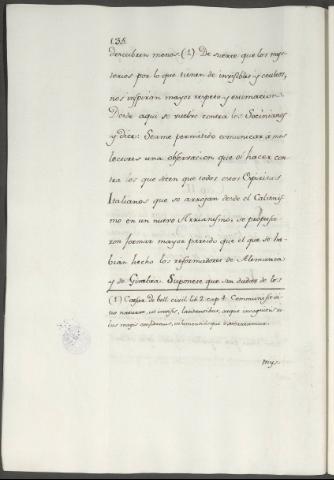 136
descubren menos. (1) De suerte que los mys-
terios por lo que tienen de invisibles y ocultos,
nos inspiran mayor respeto y estimacion.
Desde aqui se vuelve contra los Socinianos
y dice: Seame permitido comunicar à mis
lectores una observacion que oí hacer con-
tra los que dicen que todos esos Espiritus
Italianos que se arrojan desde el Calvinis-
mo en un nuevo Arrianismo, se propusie-
ron formar mayor partido que el que se ha-
bian hecho los reformadores de Alemania
y de Ginebra. Suponese que sin dudar de los
(1) Caesar de bell. civil. lib. 2. cap. 4. Communi fit vi-
tio naturae, ut invisis, latitantibus, atque incognitis re-
bus magis confidamus, vehementiusque exterreamur.
mys-